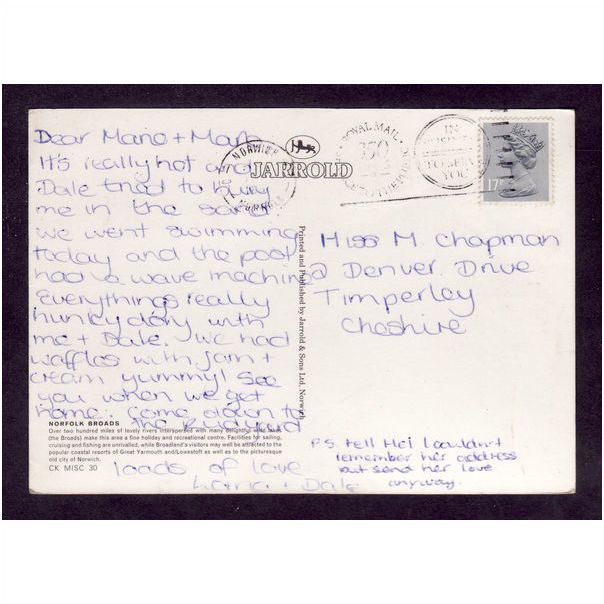 Dear Mario + Mark
It's really hot and
Dale tried to bury
me in the sand.
we went swimming
today and the pool
had a wave machine
Everythings really
hunkydory with
me + Dale. we had
waffles with jam +
cream yummy! See
you when we get
home. Come down to
the
NORFOLK BROADS
Over two hundred miles of lovely rivers interspersed with many delightful
(the Broads) make this area a fine holiday and recreational centre. Facilities for sailing,
cruising and fishing are unrivalled, while Broadland's visitors may well be attracted to the
popular coastal resorts of Great Yarmouth and/Lowestoft as well as to the picturesque
old city of Norwich.
CK MISC 30
loads of love
+ Dale
JARROLD
Printed and Published by Jarrold & Sons Ltd. Norwich
NORWICH
ROYAL MAIL
350
IN
TO SERVE
YOU
17
Miss M. Chapman
Denver Drive
Timperley
Cheshire
P.S. tell Mel I couldn't
remember her address
but send her love
anyway.